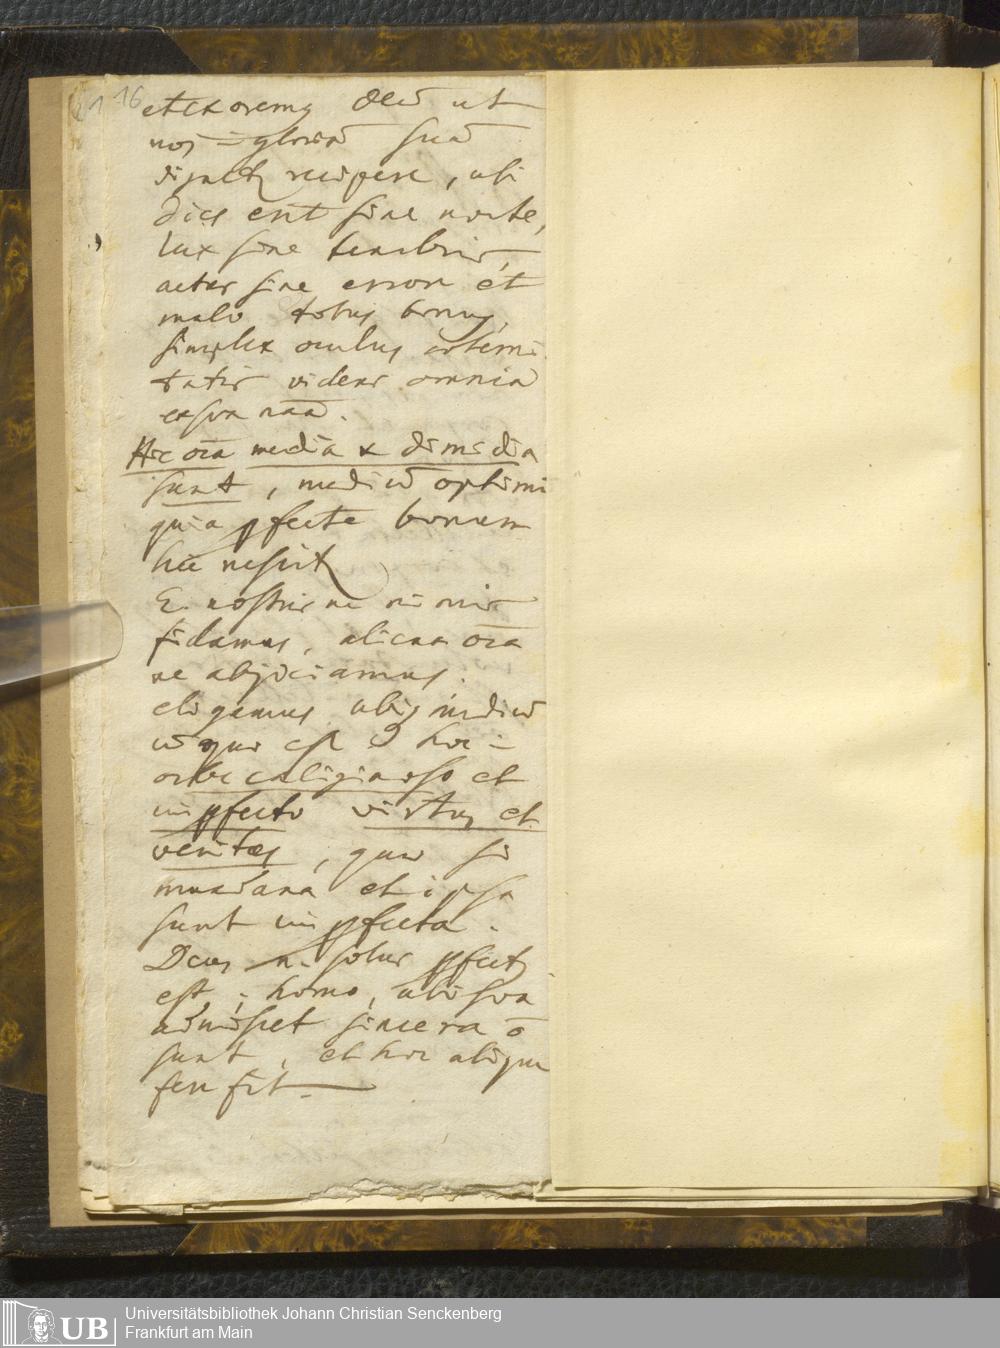 16
et exoremus deū ut
nos = gloriā suā
dignetur recipere, ubi
dies erit sine nocte,
lux sine tenebris,
aetas sine errore et
malo totus bonus,
simplex oculus aeterni
tatis videns omnia
erga nāā.
Hic oīa media & dimidia
sunt, mediū optimū
quia pfecte bonum
hic nescit
E. nostris ne nimis
fidamus, aliena oīa
ne abjiciamus.
eligamus ubiq mediū
orbe caliginoso et
impfecto virtus et
veritas, quae si
mundana et ipsa
sunt impfecta.
Deus n. solus pfectus
est, homo, ubi sua
admiscet sincera ō
sunt, et hoc ubique
fere fit.
Universitätsbibliothek Johann Christian Senckenberg
UB Frankfurt am Main